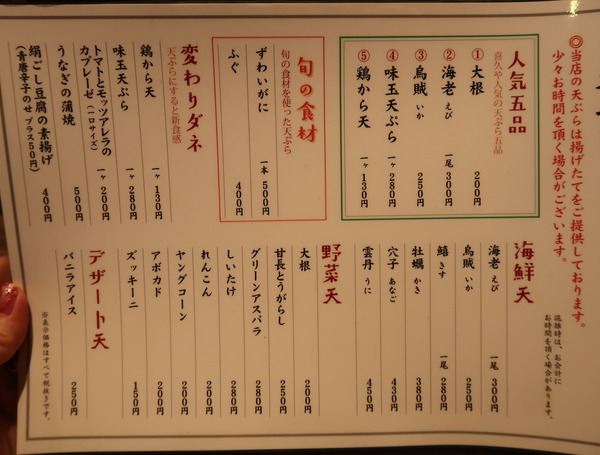 ◎当店の天ぷらは揚げたてをご提供しております。
少々お時間を頂く場合がございます。
混雑時は、お会計に
お時間を頂く場合があります。
人気五品
喜久や人気の天ぷら五品
① 大根 200円
② 海老 えび 一尾 300円
③ 烏賊 いか 250円
④ 味玉天ぷら 一ヶ 280円
⑤ 鶏から天 一ヶ 130円
旬の食材
旬の食材を使った天ぷら
ずわいがに 一本 500円
ふぐ 400円
変わりダネ
天ぷらにすると新食感
鶏から天 一ヶ 130円
味玉天ぷら 一ヶ 280円
トマトとモッツアレラの
カプレーゼ(一口サイズ) 一ヶ 200円
うなぎの蒲焼 500円
絹ごし豆腐の素揚げ 400円
(青唐辛子のせ プラス50円)
海鮮天
海老 えび 一尾 300円
烏賊 いか 250円
鱚 きす 一尾 280円
牡蠣 かき 380円
穴子 あなご 430円
雲丹 うに 450円
野菜天
大根 200円
甘長とうがらし 250円
グリーンアスパラ 280円
しいたけ 280円
れんこん 200円
ヤングコーン 200円
アボカド 200円
ズッキーニ 150円
デザート天
バニラアイス 250円
※表示価格はすべて税抜きです。